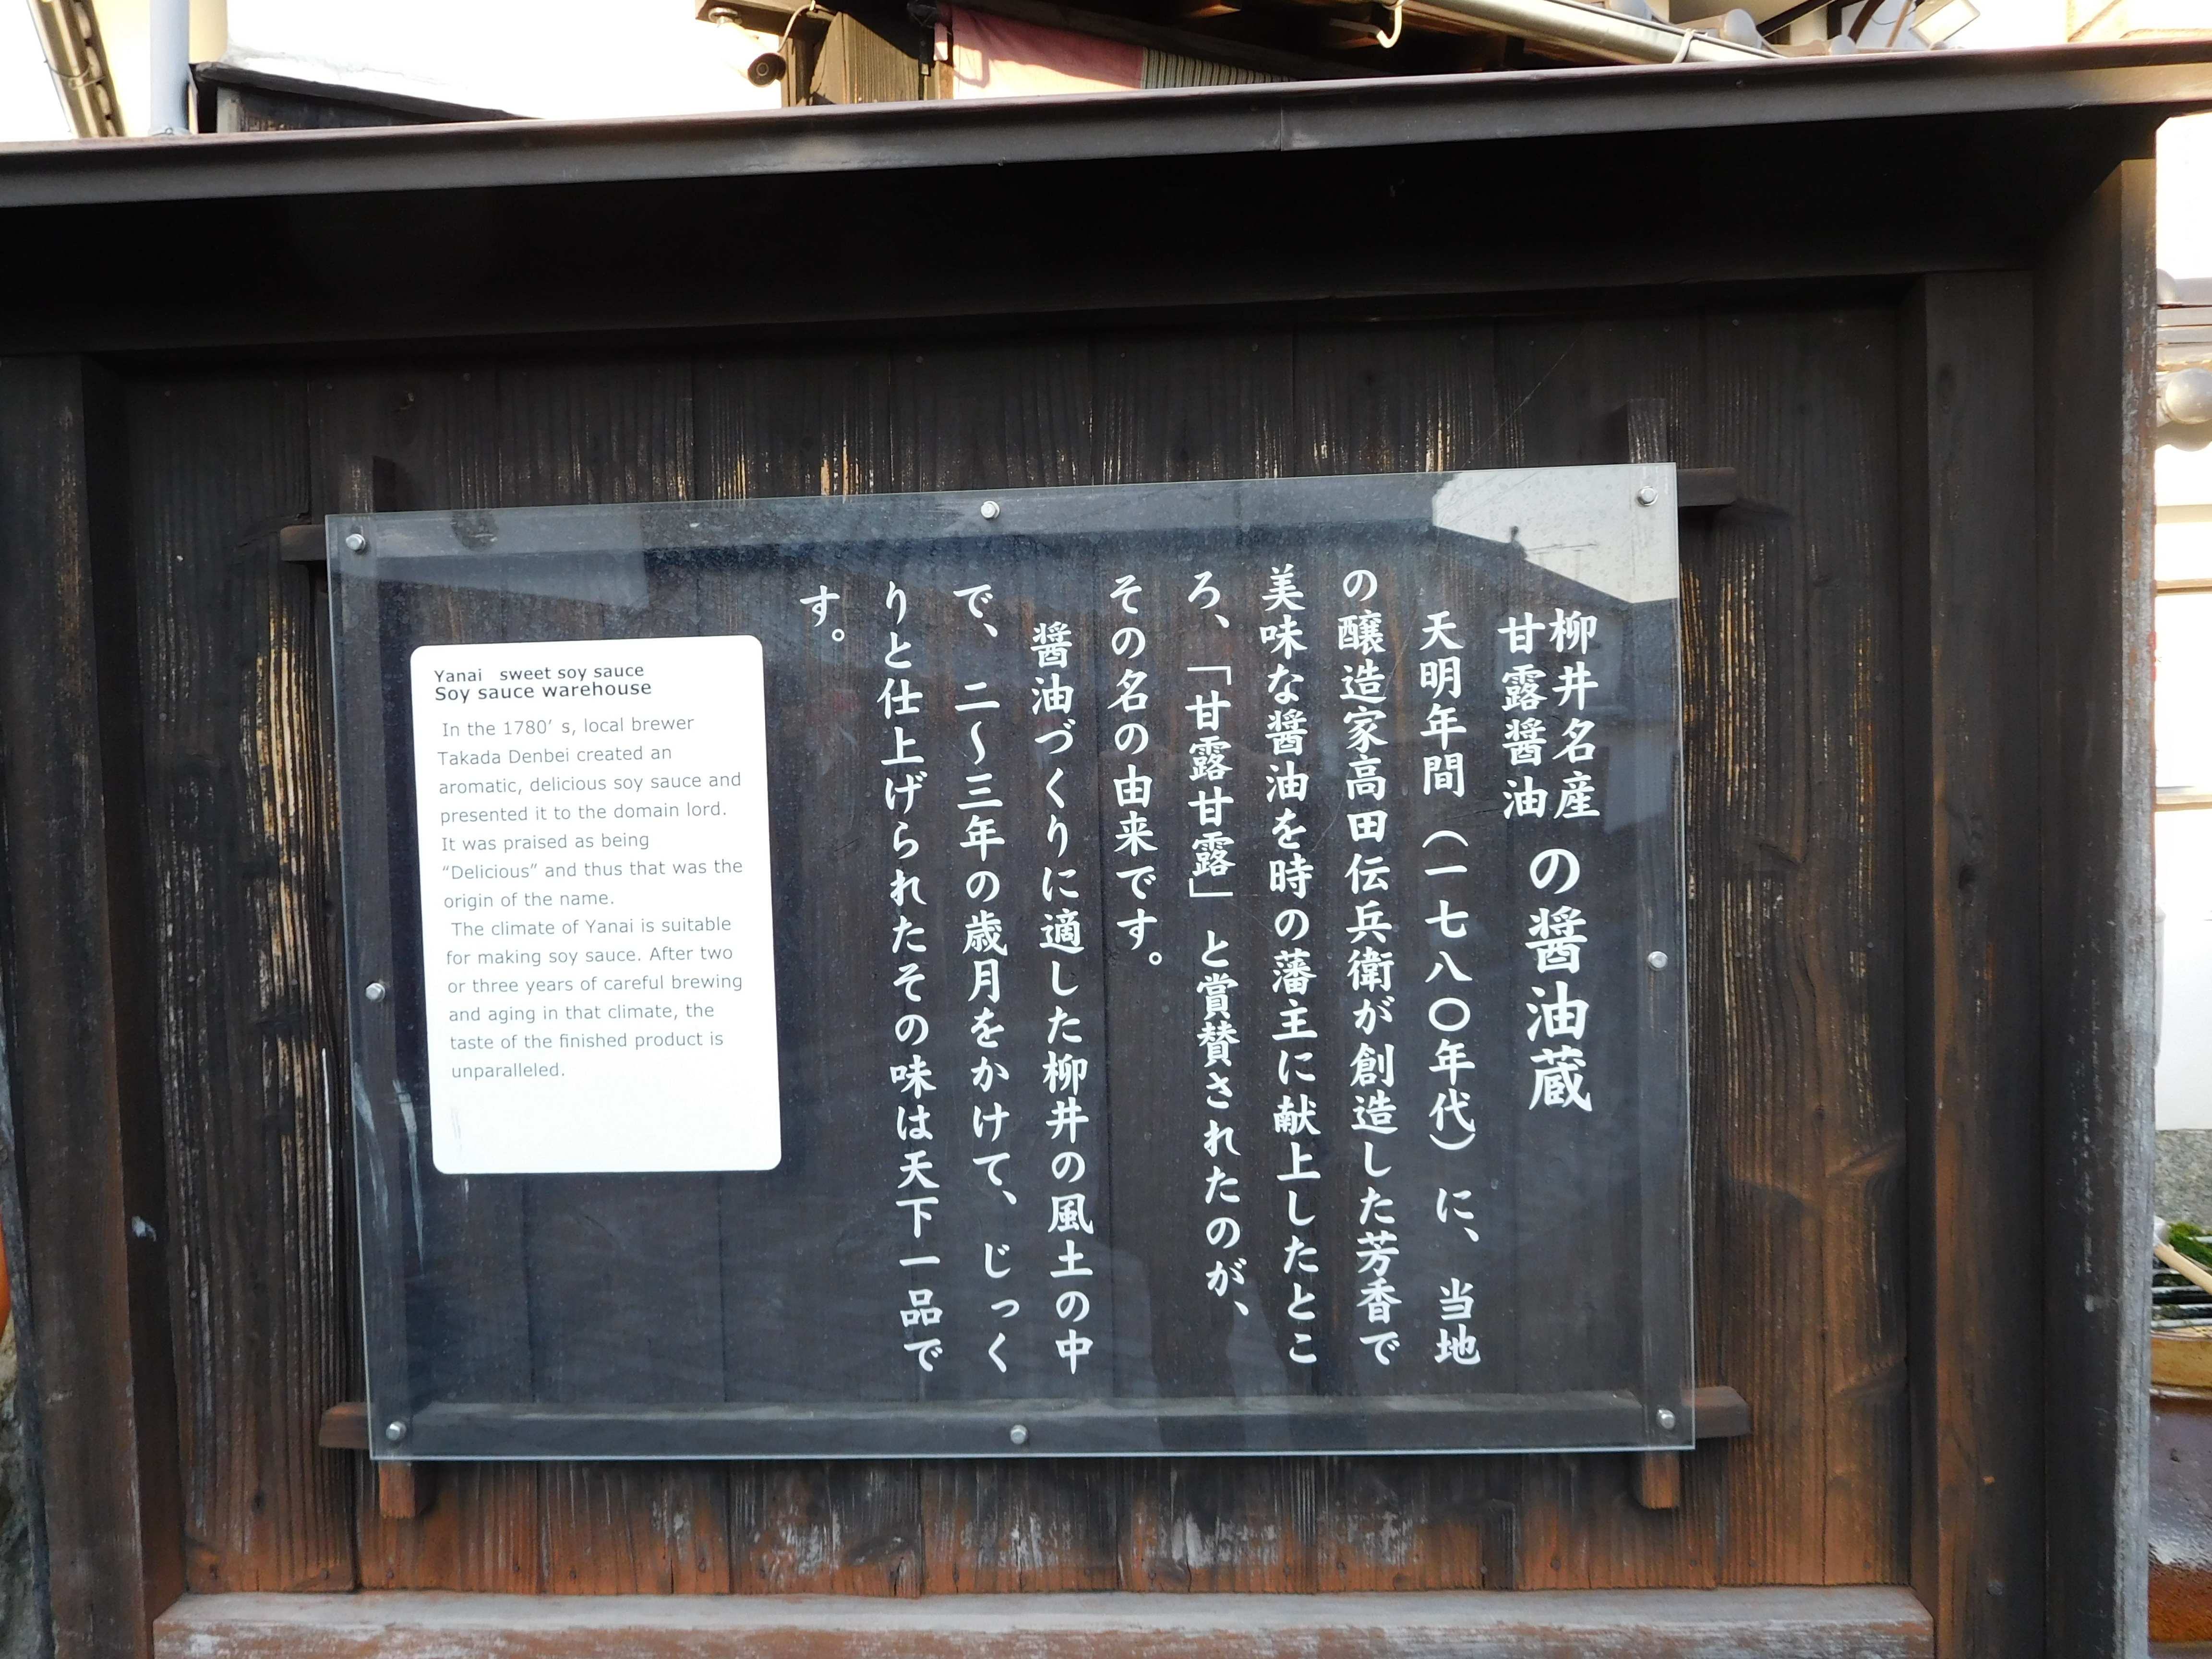 柳井名産
甘露醤油
の醤油蔵
天明年間(一七八〇年代)に、当地
の醸造家高田伝兵衛が創造した芳香で
美味な醤油を時の藩主に献上したとこ
ろ、「甘露甘露」と賞賛されたのが、
その名の由来です。
醤油づくりに適した柳井の風土の中
で、二〜三年の歳月をかけて、じっく
りと仕上げられたその味は天下一品で
す。
Yanai sweet soy sauce
Soy sauce warehouse
In the 1780' s, local brewer
Takada Denbei created an
aromatic, delicious soy sauce and
presented it to the domain lord.
It was praised as being
“Delicious” and thus that was the
origin of the name.
The climate of Yanai is suitable
for making soy sauce. After two
or three years of careful brewing
and aging in that climate, the
taste of the finished product is
unparalleled.